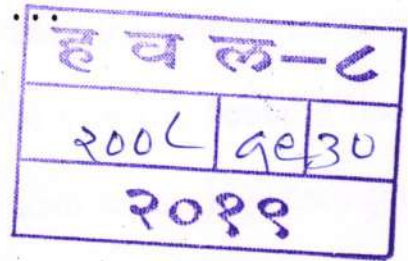 ...
ह व ल-८
२००८ १९ ३०
२०१९